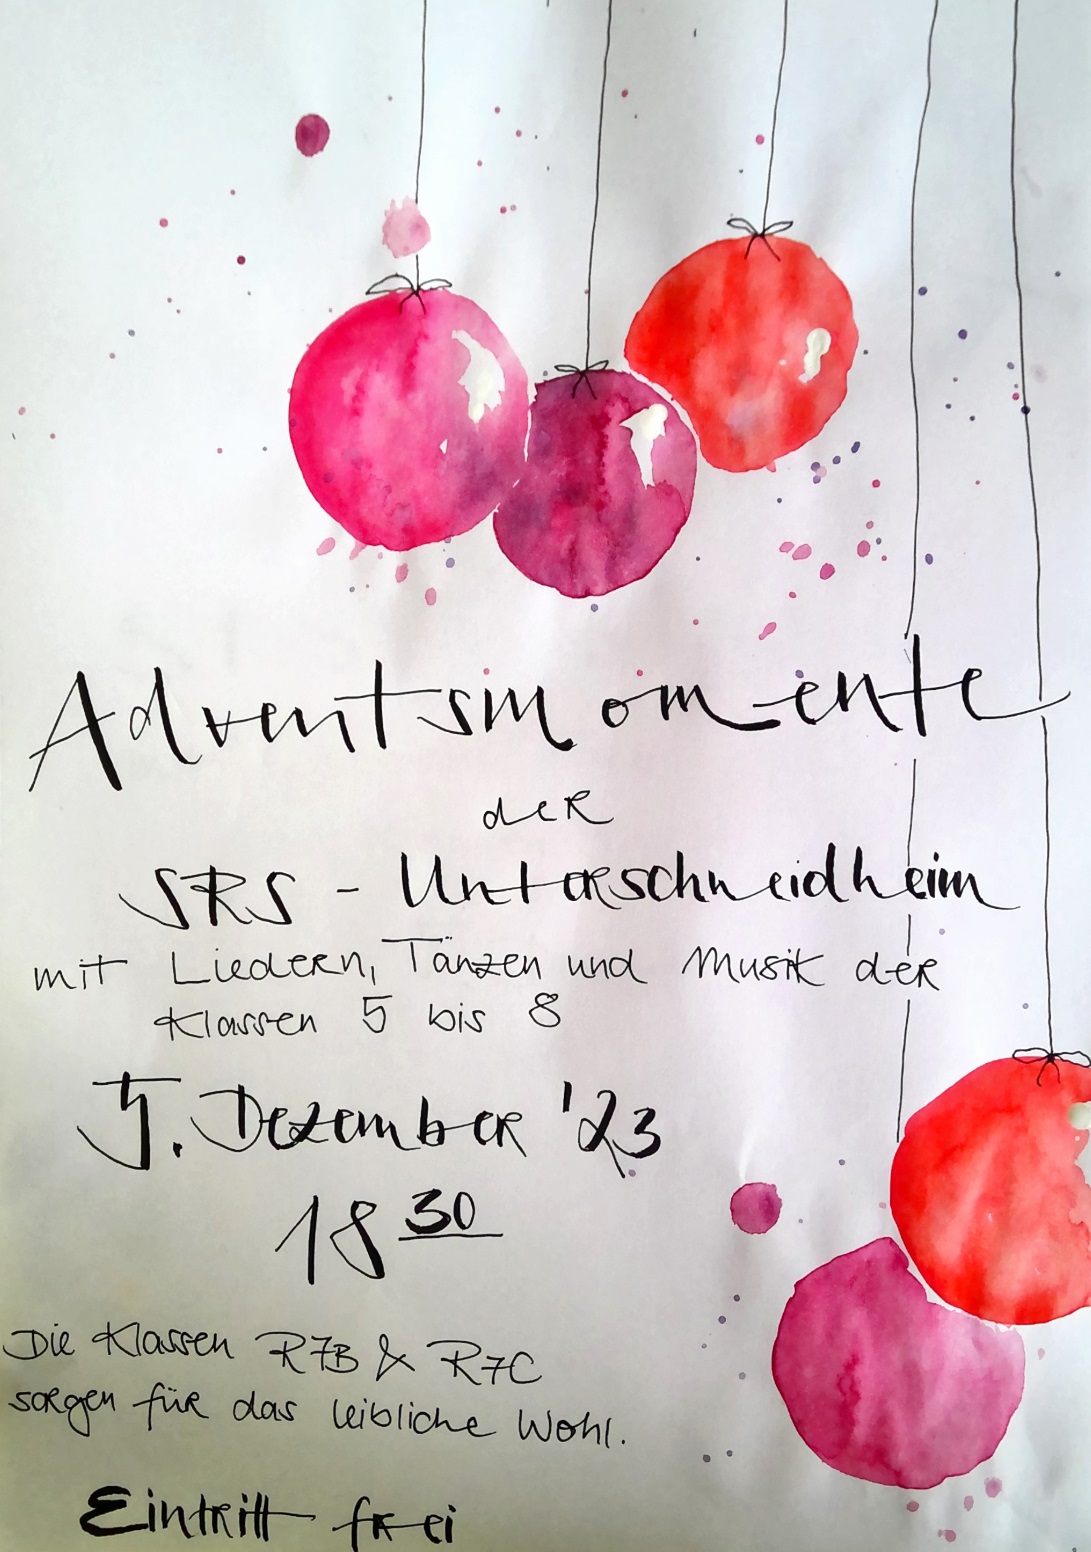 Adventsmomente
der
SRS - Unterschneidheim
mit Liedern, Tänzen und Musik der
Klassen 5 bis 8
5. Dezember '23
18 30
Die Klassen R7B & R7C
sorgen für das leibliche Wohl.
Eintritt frei